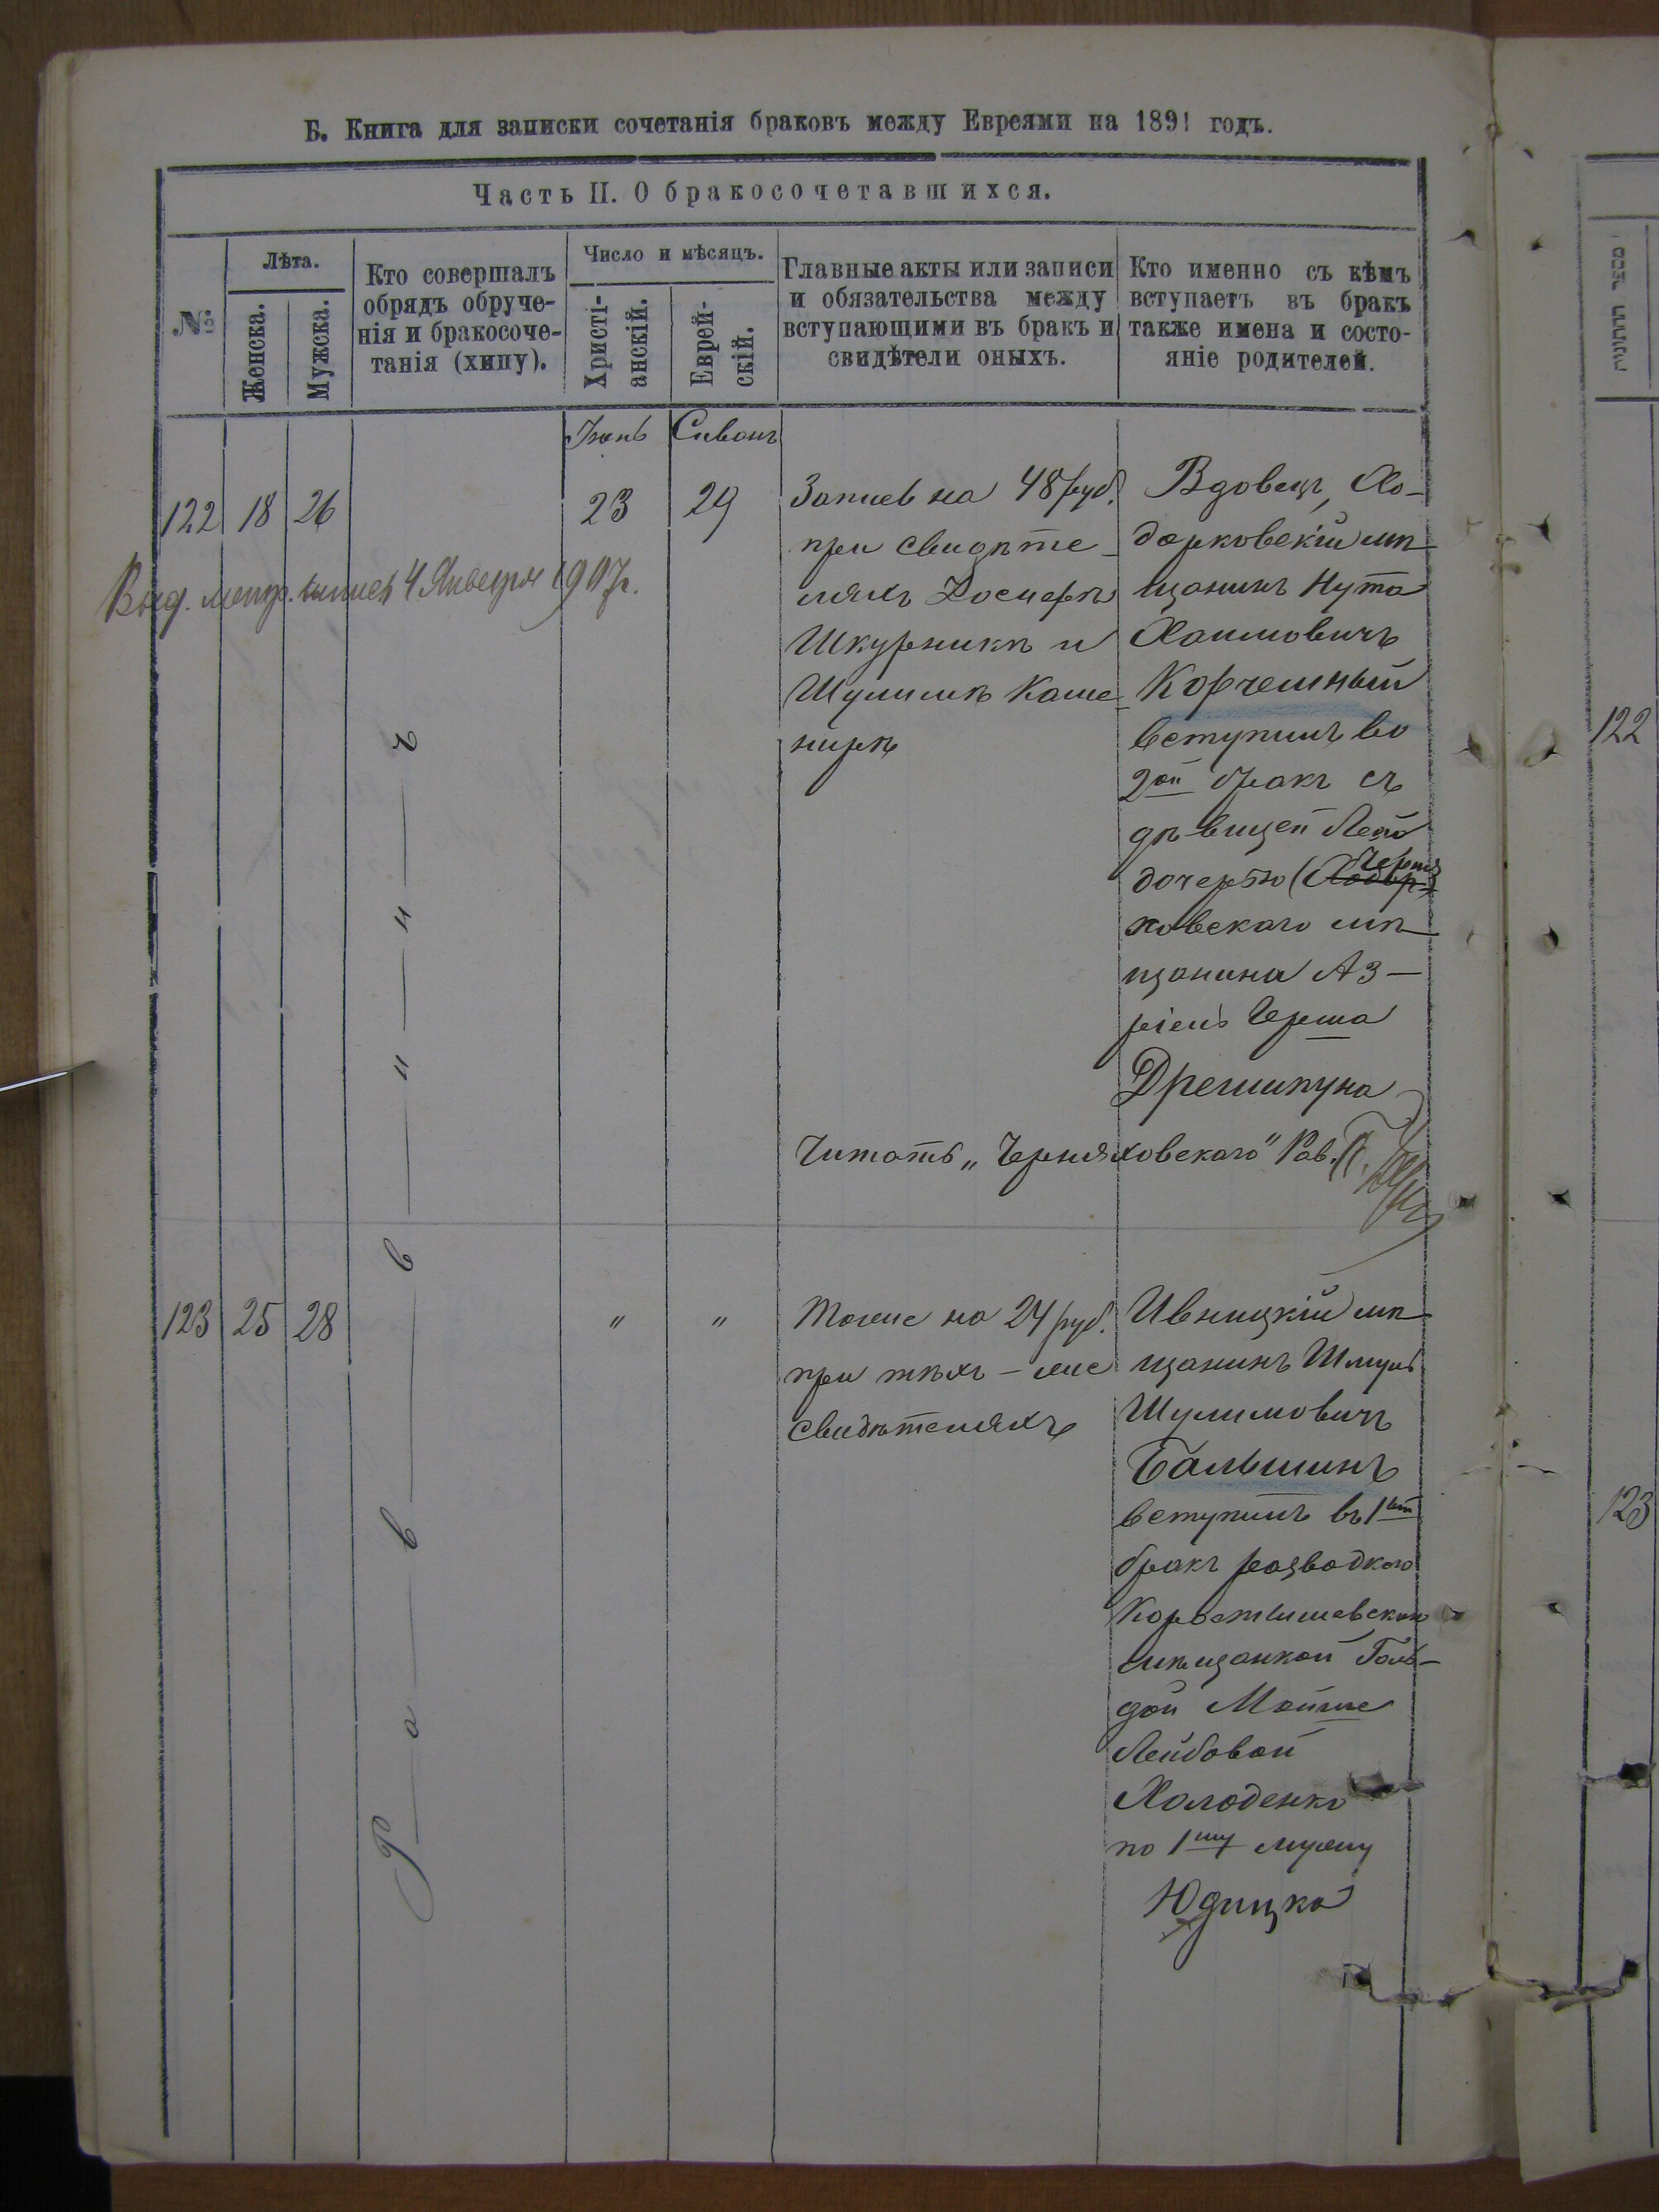 Б. Книга для записки сочетанія браковъ между Евреями на 1891 годъ.
Часть II. О бракосочетавшихся.
№
Лѣта.
Женска.
Мужска.
Кто совершалъ
обрядъ обруче-
нія и бракосоче-
танія (хипу).
Число и мѣсяцъ.
Христі-
анскій.
Еврей-
скій.
Главные акты или записи
и обязательства между
вступающими въ бракъ и
свидѣтели оныхъ.
Кто именно съ кѣмъ
вступаетъ въ бракъ
также имена и состо-
яніе родителей.
Іюнь Сиванъ
122 18 26
23 29
Выд. метр. выпись 4 Января 1907 г.
Запись на 48 руб.
при свидѣте-
ляхъ
Шкурникъ и
Шулимъ Каше-
ниръ
Вдовецъ, Хо-
дорковскій мѣ-
щанинъ Нута
Хаимовичъ
Корчемный
вступилъ во
2ой бракъ съ
дѣвицей Леей
дочерью (Ходор-
Черня
ковскаго мѣ-
щанина Аз-
ріель Герша
Дрешпуна
Читать „Черняховскаго" Рав.
Раввинъ
123 25 28
" "
Тоже на 24 руб.
при тѣхъ-же
свидѣтеляхъ
Ивницкій мѣ-
щанинъ Шмуль
Шулимовичъ
Бальшинъ
вступилъ въ 1ый
бракъ разводкою
Коростышевскою
мѣщанкой Голь-
дой Мотле
Лейбовой
Холоденко
по 1му мужу
Юдицка
122
123